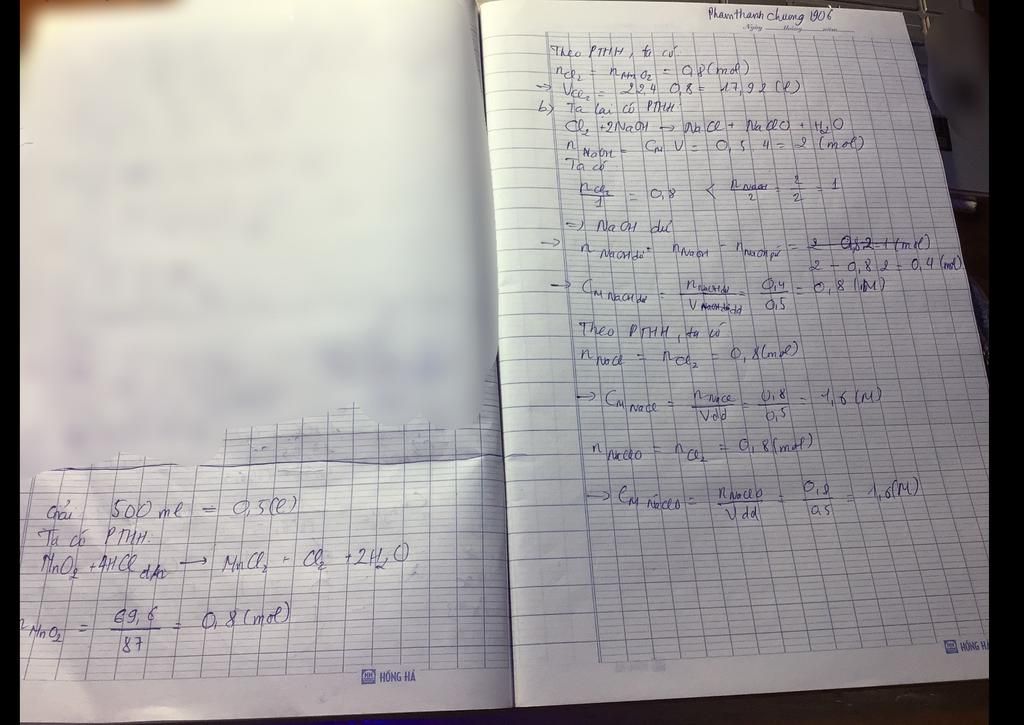 Giải 500 ml = 0,5(l)
Ta có PTHH
MnO2 + 4HCl đặc → MnCl2 + Cl2 + 2H2O
nMnO2 = 69,6/87 = 0,8 (mol)
HH HỒNG HÀ
Phạm thanh chương 1906
Ngày tháng năm
Theo PTHH, ta có
nCl2 = nMnO2 = 0,8(mol)
→ VCl2 = 22,4 0,8 = 17,92 (l)
b) Ta lại có PTHH
Cl2 + 2NaOH → NaCl + NaClO + H2O
nNaOH = CM V = 0,5 4 = 2 (mol)
Ta có
nCl2/1 = 0,8 < nNaOH/2 = 2/2 = 1
=> NaOH dư
→ nNaOH dư = nNaOH - nNaOH pứ = 2 - 0,8 2 = 1 (mol)
2 - 0,8 2 = 0,4 (mol)
→ CM NaOH dư = nNaOH dư/V dd = 0,4/0,5 = 0,8 (M)
Theo PTHH, ta có
nNaCl = nCl2 = 0,8(mol)
→ CM NaCl = nNaCl/Vdd = 0,8/0,5 = 1,6 (M)
nNaClO = nCl2 = 0,8(mol)
→ CM NaClO = nNaClO/Vdd = 0,8/0,5 = 1,6(M)
HH HỒNG HÀ